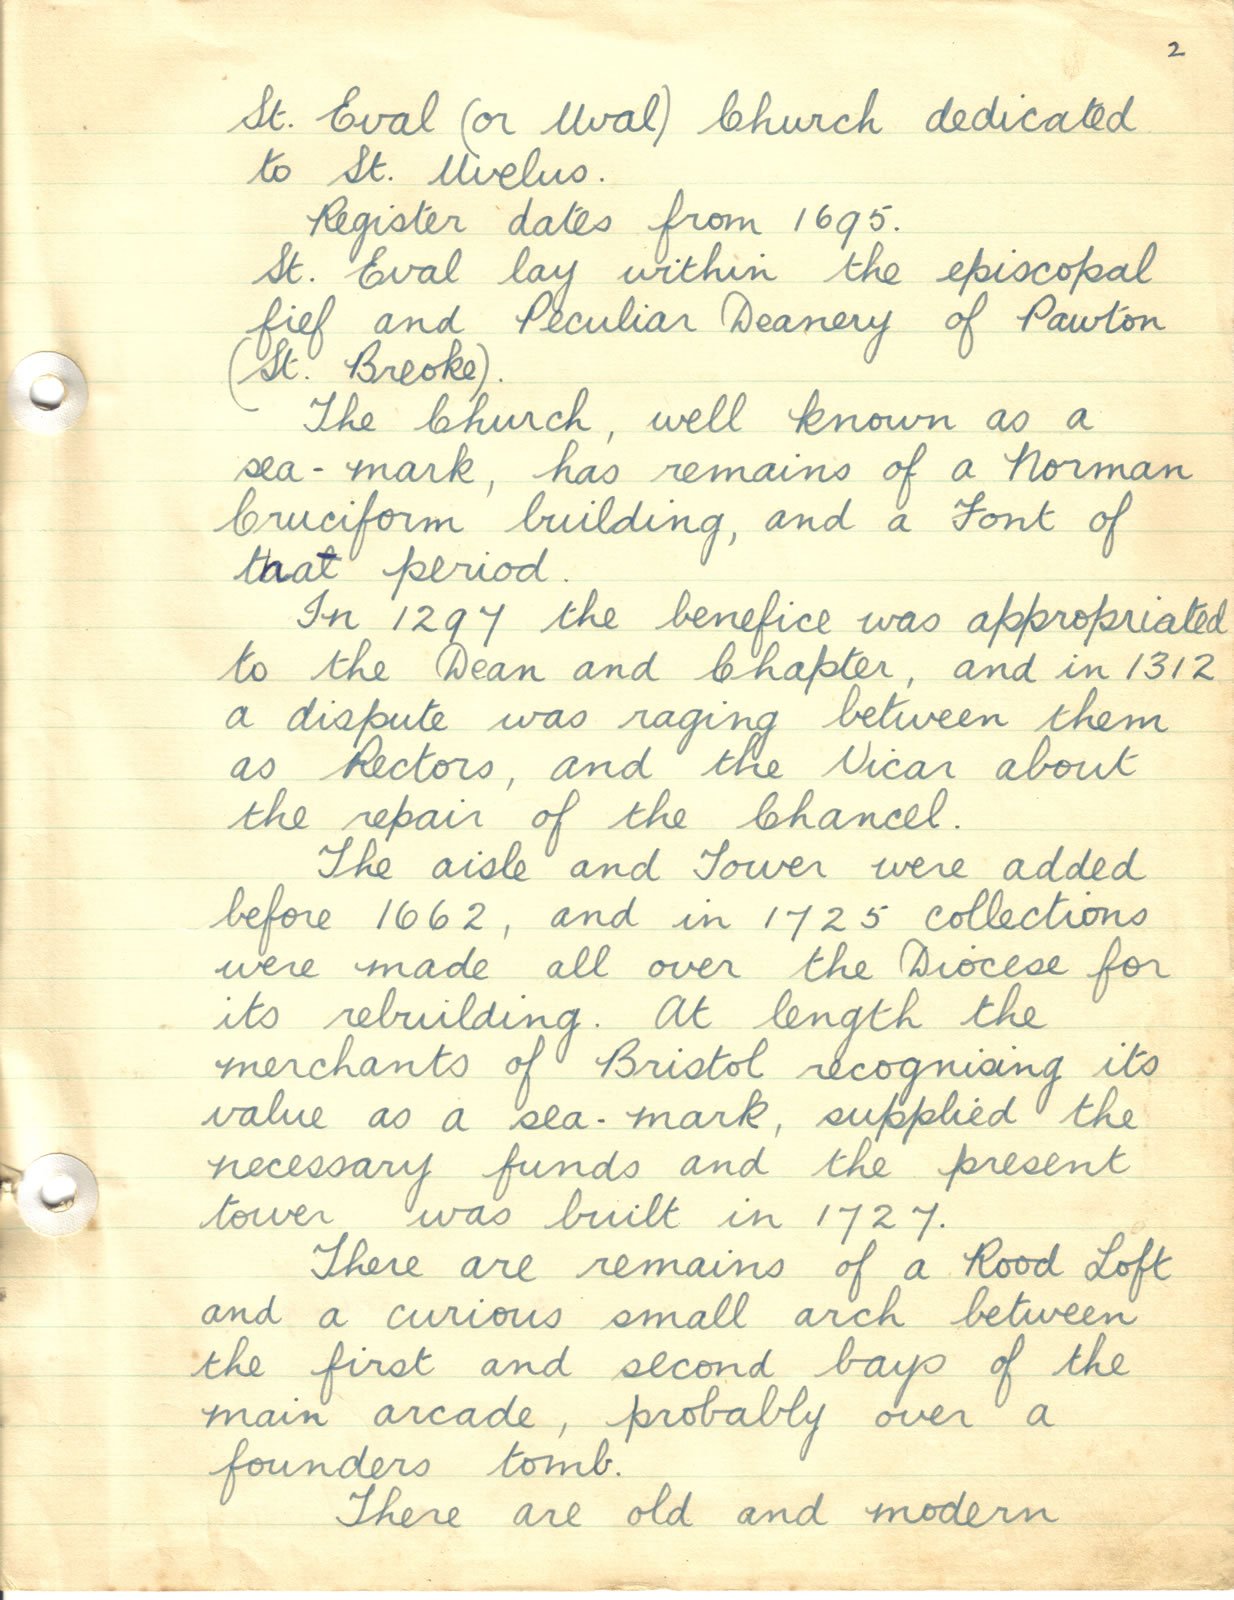 2
St. Eval (or Uval) Church dedicated
to St. Uvelus.
Register dates from 1695.
St. Eval lay within the episcopal
fief and Peculiar Deanery of Pawton
(St. Breoke).
The Church, well known as a
sea-mark, has remains of a Norman
Cruciform building, and a Font of
that period.
In 1297 the benefice was appropriated
to the Dean and Chapter, and in 1312
a dispute was raging between them
as Rectors, and the Vicar about
the repair of the Chancel.
The aisle and Tower were added
before 1662, and in 1725 collections
were made all over the Diocese for
its rebuilding. At length the
merchants of Bristol recognising its
value as a sea-mark, supplied the
necessary funds and the present
tower was built in 1727.
There are remains of a Rood Loft
and a curious small arch between
the first and second bays of the
main arcade, probably over a
founders tomb.
There are old and modern